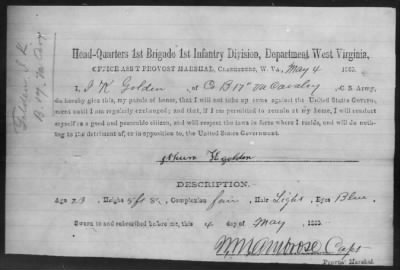 Golden J K
B. 17. Va Cav
Head-Quarters 1st Brigade 1st Infantry Division, Department West Virginia,
OFFICE ASS'T PROVOST MARSHAL, CLARKSBURG, W. VA., May 4 1865.
I, J K Golden of Co B 17" Va Cavalry C. S. Army,
do hereby give this, my parole of honor, that I will not take up arms against the United States Govern-
ment until I am regularly exchanged; and that, if I am permitted to remain at my home, I will conduct
myself as a good and peaceable citizen, and will respect the laws in force where I reside, and will do noth-
ing to the detriment of, or in opposition to, the United States Government.
golden
DESCRIPTION.
Age 23 Height 5 ft 8 Complexion fair, Hair Light, Eyes Blue
Sworn to and subscribed before me, this 4 day of May, 1865.
Ambrose Capt
Provost Marshal.